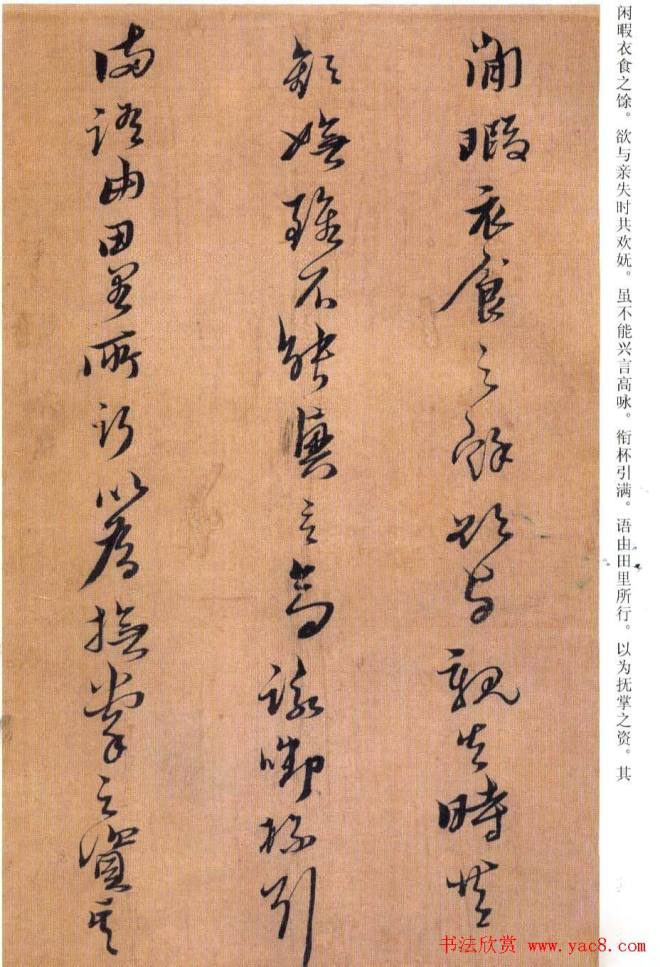 闲暇衣食之馀。欲与亲失时共欢妩。虽不能兴言高咏。衔杯引满。语由田里所行。以为抚掌之资。其
閒暇衣食之餘欲与親失時共
歡嫵雖不能興言高詠啣杯引
滿語由田里所行以為撫掌之資其
书法欣赏 www.yac8.com